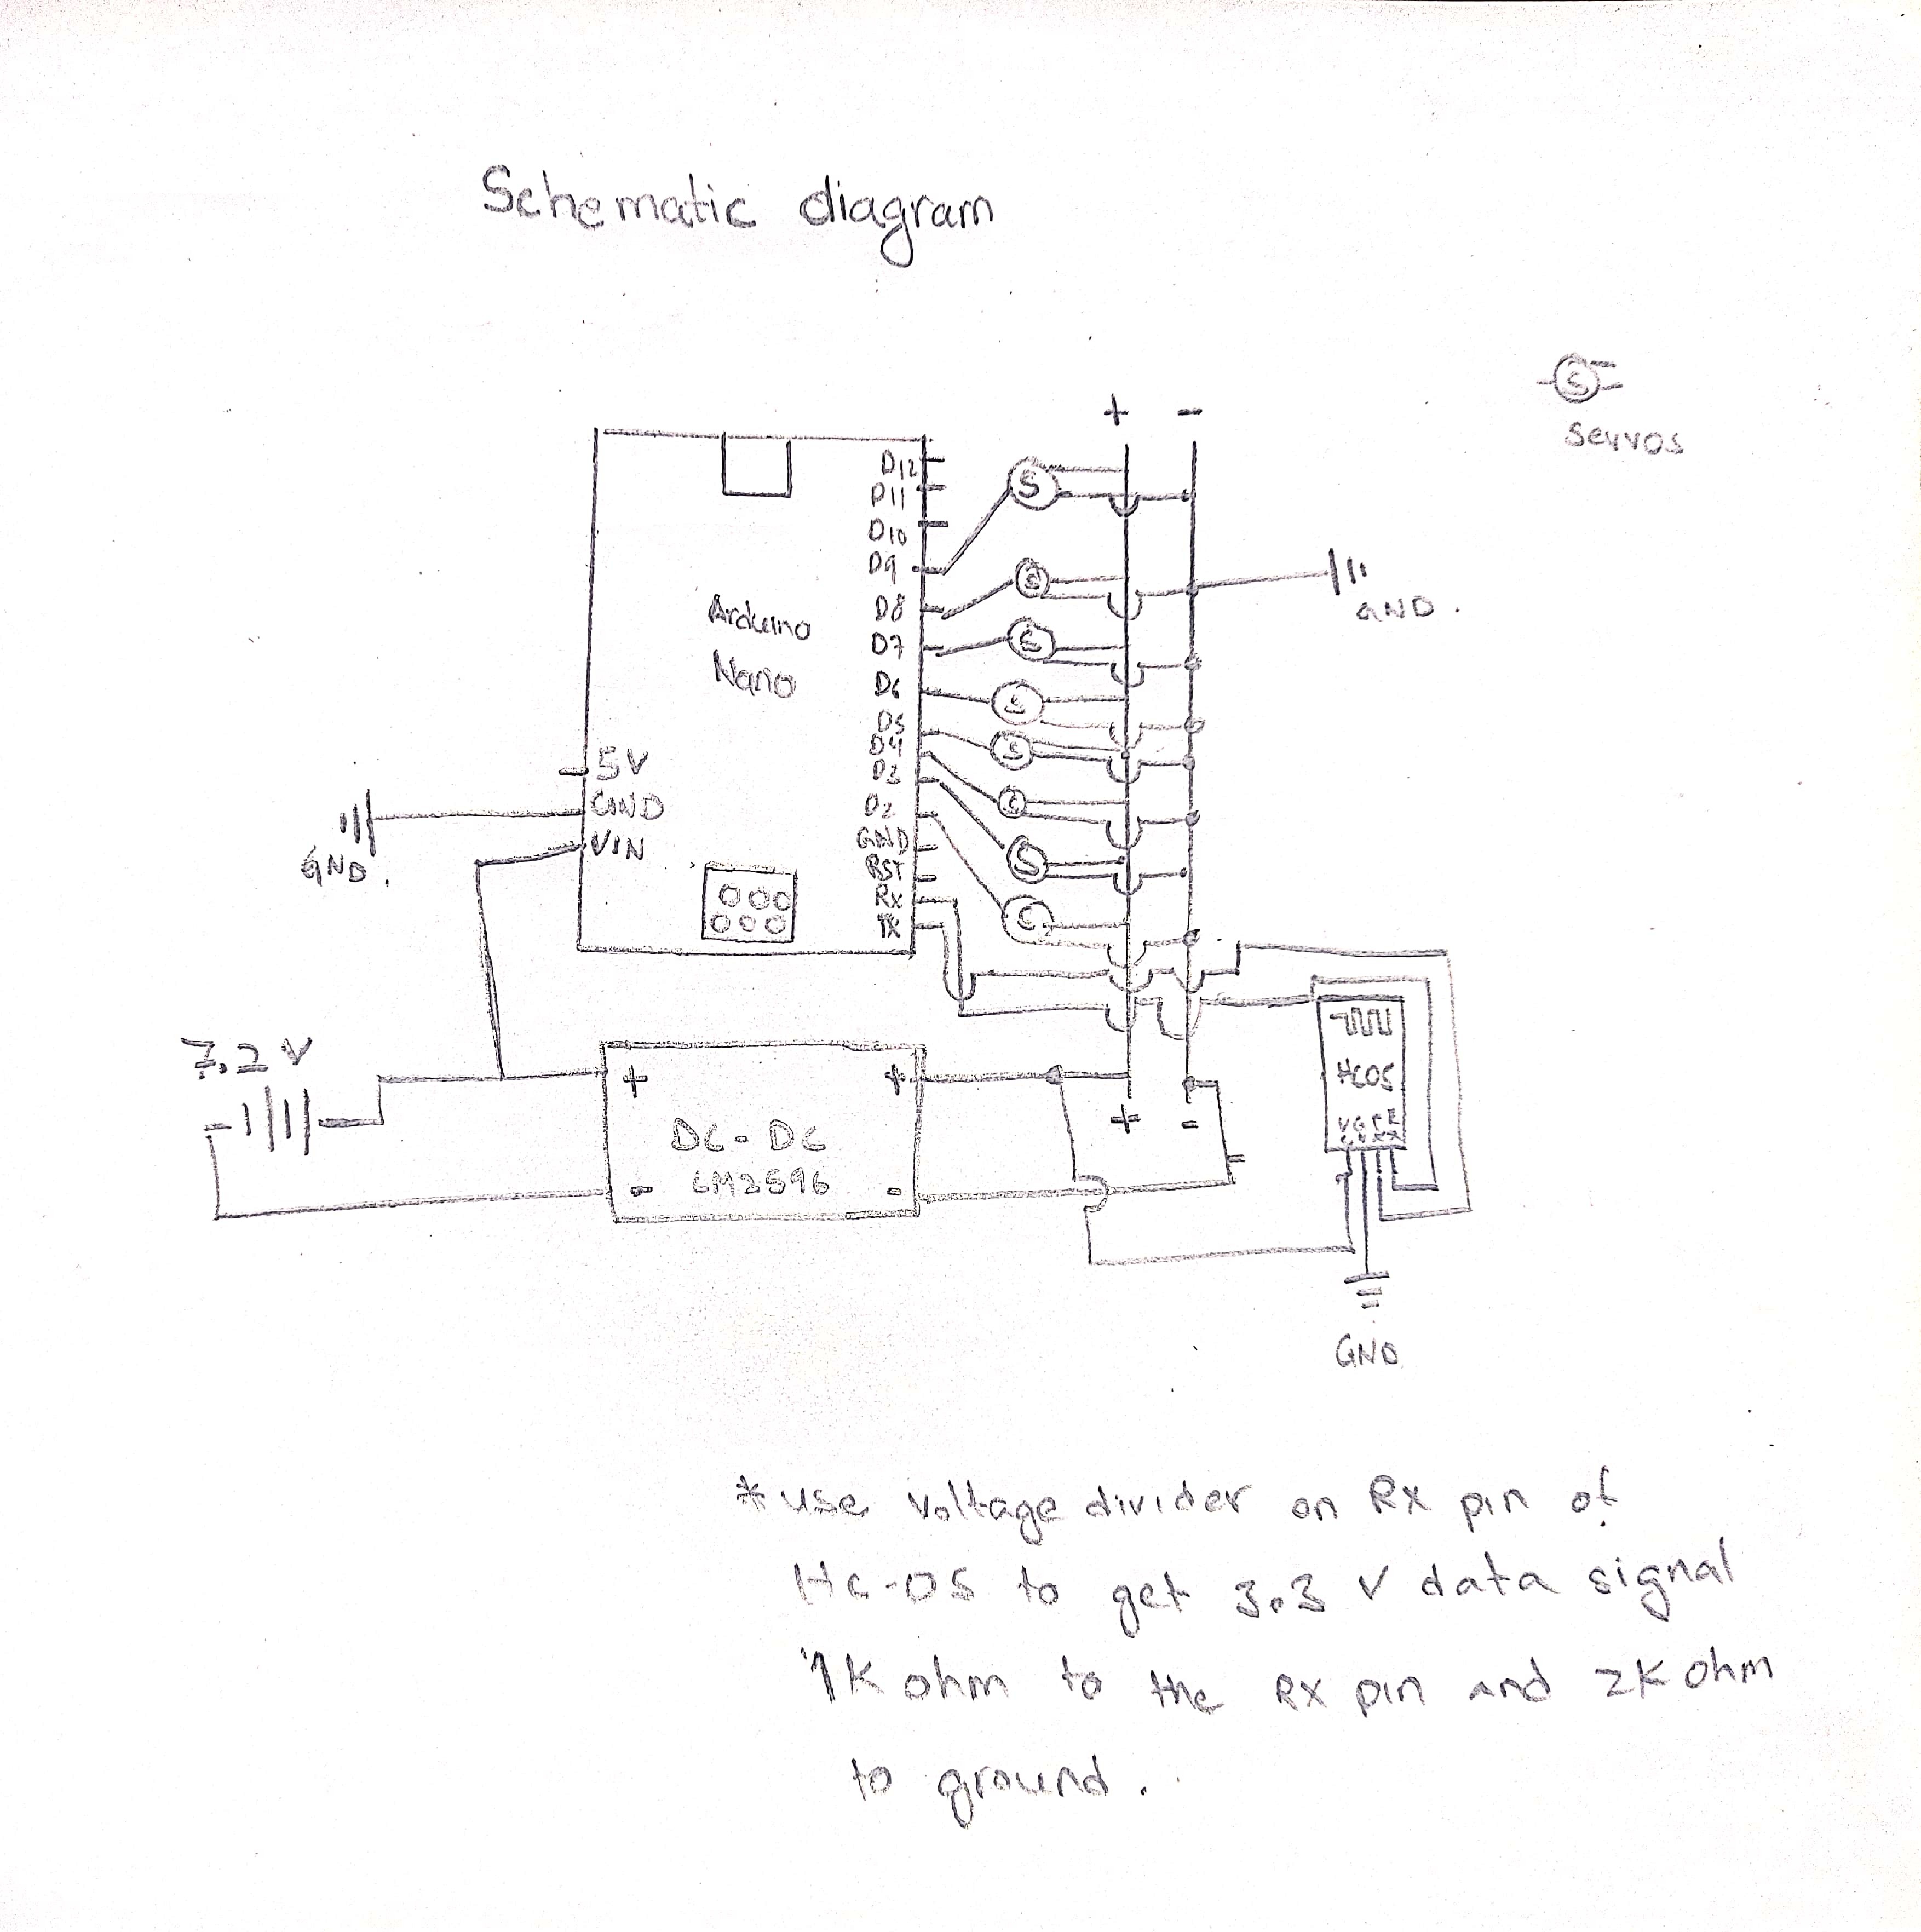 Schematic diagram
+ -
S
Servos
D12
D11
D10
D9
D8
D7
D6
D5
D4
D3
D2
GND
RST
Rx
Tx
Arduino
Nano
5V
GND
VIN
GND.
S
S
S
S
S
S
S
S
GND.
7.2 V
+ +
DC-DC
LM2596
- -
+ -
HC05
GND
*use voltage divider on Rx pin of
Hc-05 to get 3.3 V data signal
1K ohm to the Rx pin and 2K ohm
to ground.